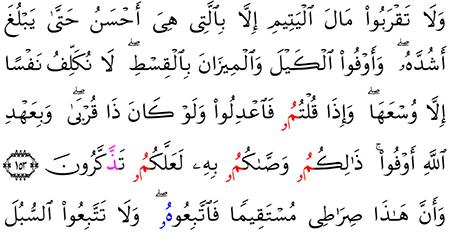 وَلَا تَقْرَبُوا۟ مَالَ ٱلْيَتِيمِ إِلَّا بِٱلَّتِى هِىَ أَحْسَنُ حَتَّىٰ يَبْلُغَ
أَشُدَّهُۥۖ وَأَوْفُوا۟ ٱلْكَيْلَ وَٱلْمِيزَانَ بِٱلْقِسْطِۖ لَا نُكَلِّفُ نَفْسًا
إِلَّا وُسْعَهَاۖ وَإِذَا قُلْتُمُۥ فَٱعْدِلُوا۟ وَلَوْ كَانَ ذَا قُرْبَىٰۖ وَبِعَهْدِ
ٱللَّهِ أَوْفُوا۟ۚ ذَٰلِكُمُۥ وَصَّىٰكُمُۥ بِهِۦ لَعَلَّكُمُۥ تَذَّكَّرُونَ ١٥٣
وَأَنَّ هَٰذَا صِرَٰطِى مُسْتَقِيمًا فَٱتَّبِعُوهُۥۖ وَلَا تَتَّبِعُوا۟ ٱلسُّبُلَ